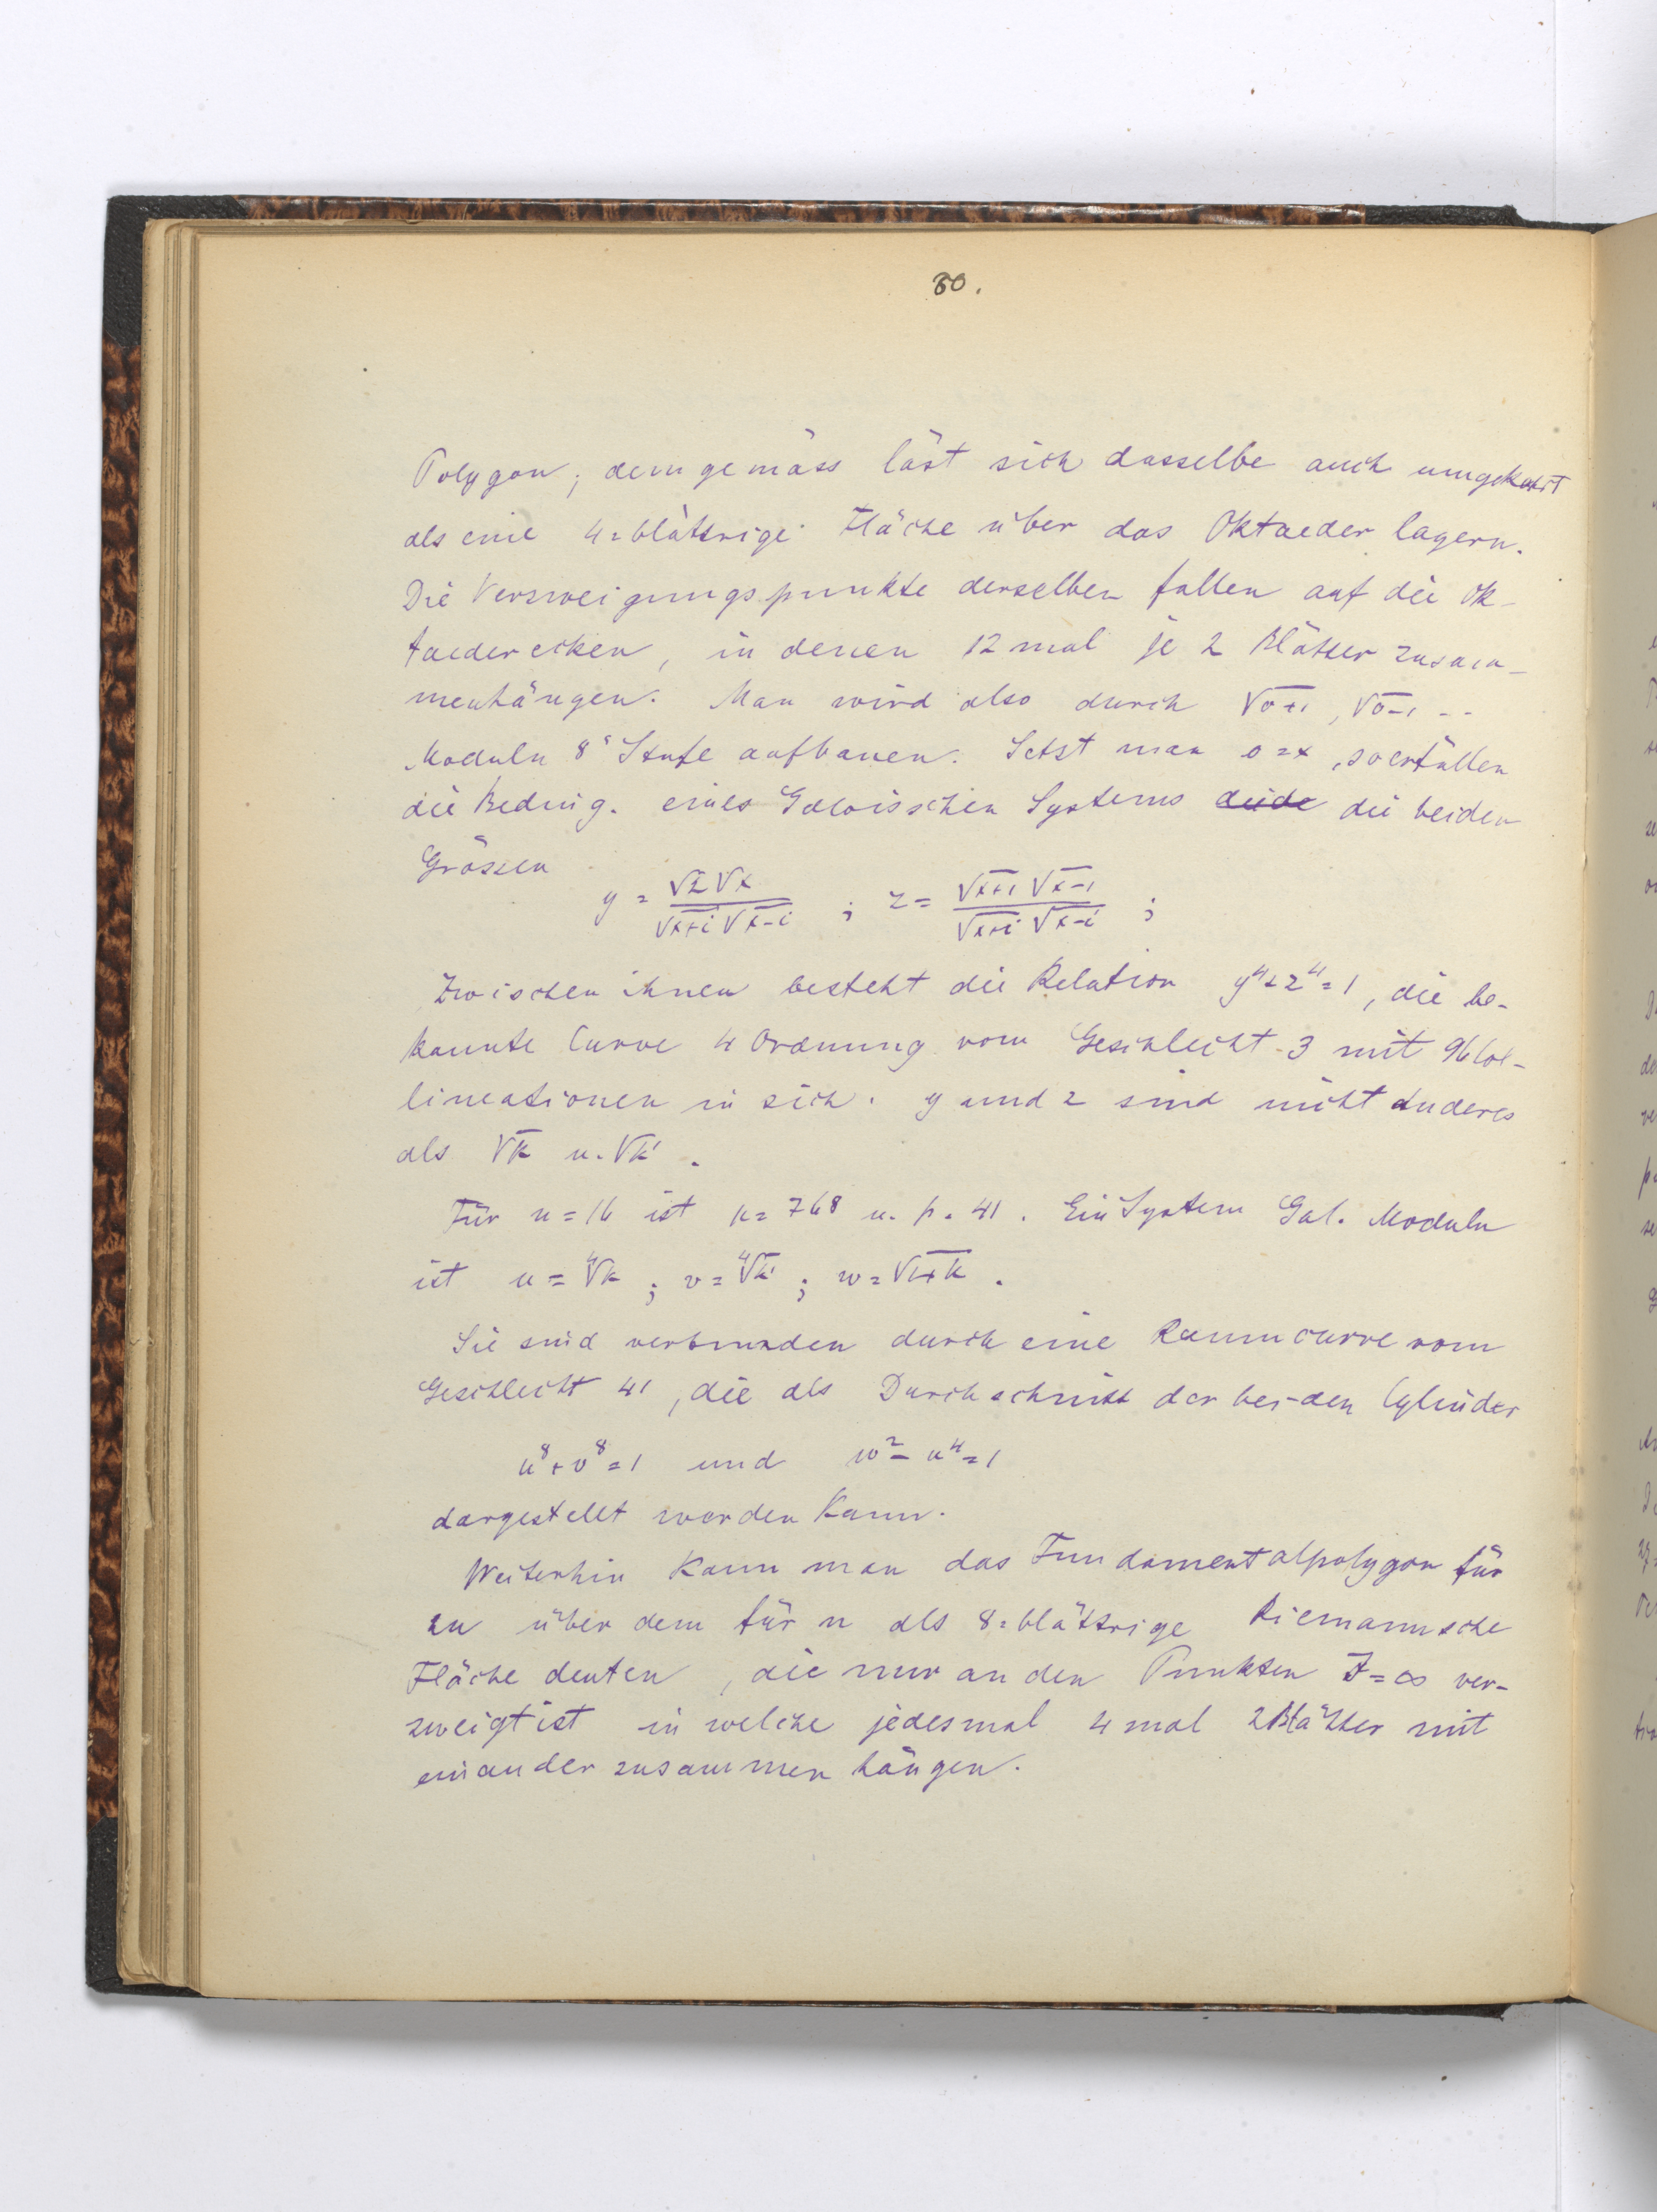 60.
Polygon; demgemäss läst sich dasselbe auch umgekehrt
als eine 4=blättrige Fläche über das Oktaeder lagern.
Die Verzweigungspunkte derselben fallen auf die Ok-
taederecken, in denen 12 mal je 2 Blätter zusam-
menhängen. Man wird also durch √o+1, √o-1 --
Moduln 8ͭ Stufe aufbauen. Setzt man o=x, so erfüllen
die Beding. eines Galoisschen Systems die beiden
Grössen
y = √2√x / √x+i √x-i ; z = √x+1 √x-1 / √x+i √x-i ;
Zwischen ihnen besteht die Relation y⁴+z⁴=1, die be-
kannte Curve 4 Ordnung vom Geschlecht 3 mit 96 Col-
lineationen in sich. y und z sind nicht Anderes
als √k u. √k'.
Für n=16 ist μ=768 u. p=41. Ein System Gal. Moduln
ist u=⁴√k ; v=⁴√k' ; w=√1+k .
Sie sind verbunden durch eine Raumcurve vom
Geschlecht 41, die als Durchschnitt der bei-den Cylinder
u⁸+v⁸=1 und w²-u⁴=1
dargestellt werden kann.
Weiterhin kann man das Fundamentalpolygon für
2n über dem für n als 8=blättrige Riemannsche
Fläche deuten, die nur an den Punkten J=∞ ver-
zweigt ist in welche jedesmal 4 mal 2 Blätter mit
einander zusammen hängen.